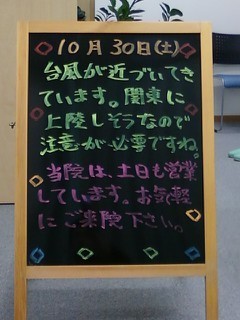 10月30日(土)
台風が近づいてき
ています。関東に
上陸しそうなので
注意が必要ですね。
当院は、土日も営業
しています。お気軽
にご来院下さい。